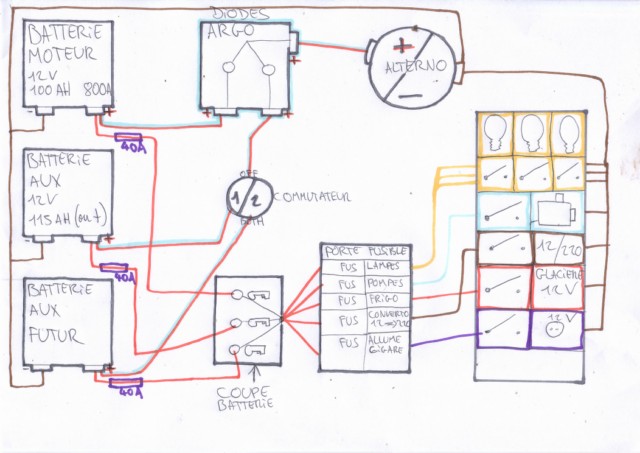 BATTERIE
MOTEUR
12V
100AH 800A
- +
40A
DIODES
ARGO
+
+ +
+
ALTERNO
-
BATTERIE
AUX
12V
115AH (ou +)
- +
40A
OFF
1/2
BOTH
COMMUTATEUR
BATTERIE
AUX
FUTUR
- +
40A
COUPE
BATTERIE
PORTE FUSIBLE
FUS LAMPES
FUS POMPES
FUS FRIGO
FUS CONVERTO
12→220
FUS ALLUME
CIGARE
12/220
GLACIERE
12V
12V